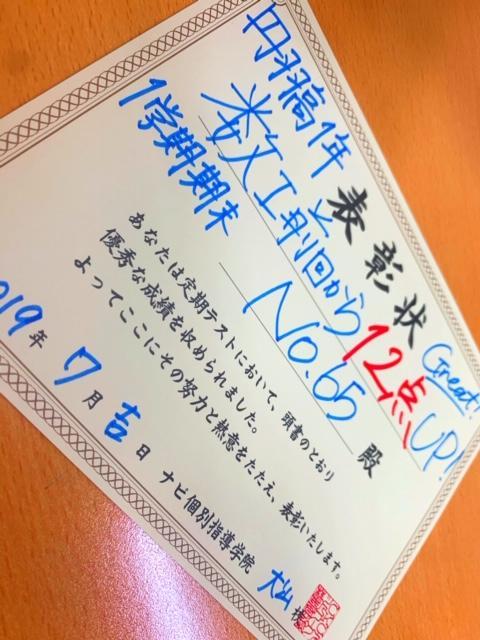 表彰状
Great!
丹羽高1年
数Ⅰ前回から12点UP!
1学期期末
No.65 殿
あなたは定期テストにおいて、頭書のとおり
優秀な成績を収められました。
よってここにその努力と熱意をたたえ、表彰いたします。
019年7月吉日
ナビ個別指導学院